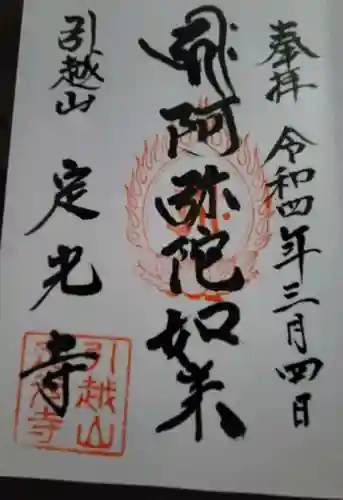 奉拝 令和四年三月四日
阿弥陀如来
引越山 定光寺
引越山
定光寺